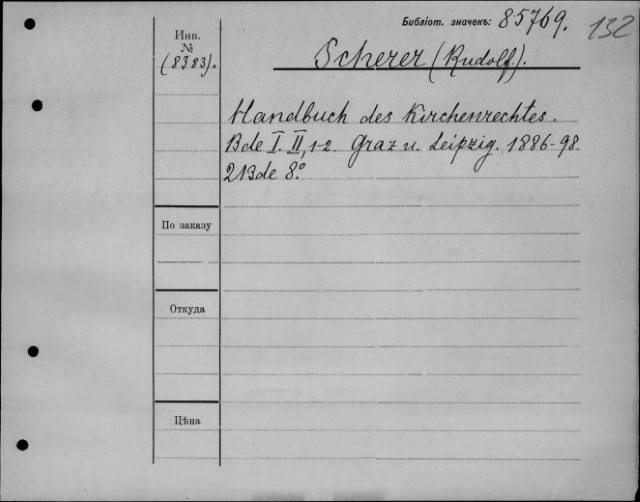 Библіот. значекъ: 85769.
132
Инв.
№
(8383).
Scherer (Rudolf).
Handbuch des Kirchenrechtes.
Bde I. II, 1-2. Graz u. Leipzig. 1886-98.
2 Bde 8º.
По заказу
Откуда
Цѣна